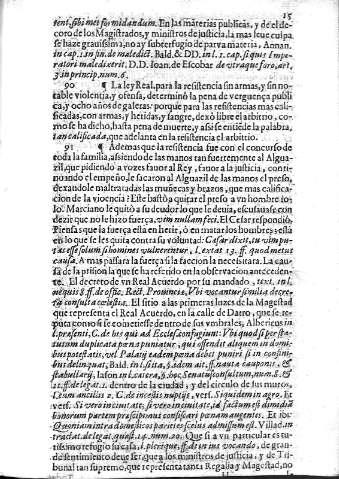 15
tent, sibi mei formidandum. En las materias publicas, y de el de-
coro de los Magistrados, y ministros de justicia, la mas leue culpa
se haze grauissima, no ay subterfugio de parva materia, Annan.
in cap. 1. in fin. de maledict. Bald. & DD. in l. 1. cap. si quis Impe-
ratori maledixerit. D.D. Ioan. de Escobar de vtraque foro, art.
3. in princip. num. 6.
90 ¶ La ley Real, para la resistencia sin armas, y sin no-
table violencia, y ofensa, determinò la pena de verguença publi-
ca, y ocho años de galeras: porque para las resistencias mas cali-
ficadas, con armas, y heridas, y sangre, dexò libre el arbitrio, co-
mo se ha dicho, hasta pena de muerte, y assi se entiēde la palabra,
tan calificada, que adelanta en la resistencia el arbitrio.
91 ¶ Ademas que la resistencia fue con el concurso de
toda la familia, asiendo de las manos tan fuertemente al Algua-
zil, que pidiendo a vozes fauor al Rey, fauor a la justicia, conti-
nonando el empeño, le sacaron al Alguazil de las manos el preso,
dexandole maltratadas las muñecas y brazos, que mas califica-
cion de la viencia? Este bastò a quitar el preso a vn hombre so-
lo. Marciano le quitò a su deudor lo que le deuia, escusauase con
dezir que no le hizo fuerça, vim nullam feci. El Cesar respondiò,
Piensas que la fuerça està en herir, ò en matar los hombres? està
en lo que se les quita contra su voluntad. Cæsar dixit, tu vim pu-
tas esse solum si homines vulnerentur, l. extat 13. ff. quod metus
causa. A mas passara la fuerça si la faccion la necessitara. La cau-
sa de la prision la que se ha referido en la obseruacion anteceden-
te. El decreto de vn Real Acuerdo por su mandado, text. in l.
nequis 8. ff. de offic. Rect. Prouinciæ, Vbi vocantur similia decre-
to consulta ecclesia. El sitio a las primeras luzes de la Magestad
que representa el Real Acuerdo, en la calle de Darro, que se re-
puta como si se cometiesse dentro de sus vmbrales, Albericus in
l. presenti, C. de his qui ad Eccles. Confugiunt: Vbi quod si per for-
tuitum duplicata pœna puniatur, qui offendit aliquem in domi-
bus potestatis, vel Palatij eadem pœna debet puniri si in confini-
bus delinquat, Bald. in l. sita, §. idem ait, ff. nautæ caupones, &
stabullarij, Iason in l. cetera, §. hoc Senatusconsultum, num. 8. &
11. ff. de legat. 1. dentro de la ciudad, y del circulo de sus muros,
l. cum ancilis 2. C. de incestis nuptijs, vers. Si quidem in agro. Et
vers. Si vero in ciuitate, si vero in ciuitate, id factum est dimediā
bonorum partem proscriptionis consiscari pœnam augentes. Et ibi:
Quoniam intra domesticos parietes scelus admissum est. Villad. in
tractat. de legat. quæst. 14. num. 20. Que si a vn particular es tu-
tissimo refugio su casa, l. plerique, ff. de in ius vocando, de gran-
de sentimiento deue ser, que a los ministros de justicia, y de Tri-
bunal tan supremo, que representa tanta Regalia y Magestad, no